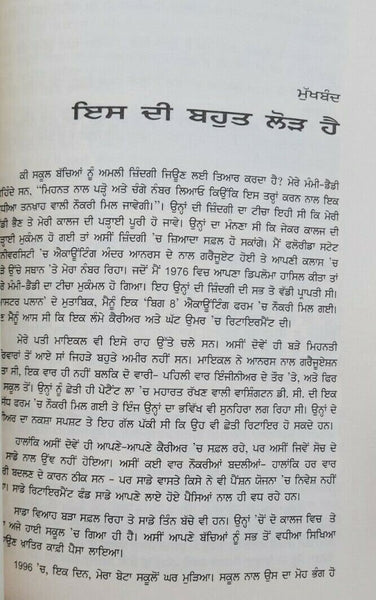 ਮੁੱਖਬੰਦ
ਇਸ ਦੀ ਬਹੁਤ ਲੋੜ ਹੈ
ਕੀ ਸਕੂਲ ਬੱਚਿਆਂ ਨੂੰ ਅਮਲੀ ਜ਼ਿੰਦਗੀ ਜਿਊਣ ਲਈ ਤਿਆਰ ਕਰਦਾ ਹੈ? ਮੇਰੇ ਮੰਮੀ-ਡੈਡੀ
ਹਿੰਦੇ ਸਨ, "ਮਿਹਨਤ ਨਾਲ ਪੜ੍ਹੋ ਅਤੇ ਚੰਗੇ ਨੰਬਰ ਲਿਆਓ ਕਿਉਂਕਿ ਇਸ ਤਰ੍ਹਾਂ ਕਰਨ ਨਾਲ ਇਕ
ਧੀਆ ਤਨਖਾਹ ਵਾਲੀ ਨੌਕਰੀ ਮਿਲ ਜਾਵੇਗੀ।" ਉਨ੍ਹਾਂ ਦੀ ਜ਼ਿੰਦਗੀ ਦਾ ਟੀਚਾ ਇਹੀ ਸੀ ਕਿ ਮੇਰੀ
ਡੀ ਭੈਣ ਤੇ ਮੇਰੀ ਕਾਲਜ ਦੀ ਪੜ੍ਹਾਈ ਪੂਰੀ ਹੋ ਜਾਵੇ। ਉਨ੍ਹਾਂ ਦਾ ਮੰਨਣਾ ਸੀ ਕਿ ਜੇਕਰ ਕਾਲਜ ਦੀ
ੜ੍ਹਾਈ ਮੁਕੰਮਲ ਹੋ ਗਈ ਤਾਂ ਅਸੀਂ ਜ਼ਿੰਦਗੀ 'ਚ ਜ਼ਿਆਦਾ ਸਫਲ ਹੋ ਸਕਾਂਗੇ। ਮੈਂ ਫਲੋਰੀਡਾ ਸਟੇਟ
ਨੀਵਰਸਿਟੀ 'ਚ ਅਕਾਊਂਟਿੰਗ ਅੰਦਰ ਆਨਰਸ ਦੇ ਨਾਲ ਗਰੈਜੂਏਟ ਹੋਈ ਅਤੇ ਆਪਣੀ ਕਲਾਸ 'ਚ
ੜੇ ਉੱਚੇ ਸਥਾਨ 'ਤੇ ਮੇਰਾ ਨੰਬਰ ਰਿਹਾ। ਜਦੋਂ ਮੈਂ 1976 ਵਿਚ ਆਪਣਾ ਡਿਪਲੋਮਾ ਹਾਸਿਲ ਕੀਤਾ ਤਾਂ
ਮੰਮੀ-ਡੈਡੀ ਦਾ ਟੀਚਾ ਮੁਕੰਮਲ ਹੋ ਗਿਆ। ਇਹ ਉਨ੍ਹਾਂ ਦੀ ਜ਼ਿੰਦਗੀ ਦੀ ਸਭ ਤੋਂ ਵੱਡੀ ਪ੍ਰਾਪਤੀ ਸੀ।
ਾਸਟਰ ਪਲਾਨ' ਦੇ ਮੁਤਾਬਿਕ, ਮੈਨੂੰ ਇਕ 'ਬਿਗ 8' ਅਕਾਊਂਟਿੰਗ ਫਰਮ 'ਚ ਨੌਕਰੀ ਮਿਲ ਗਈ।
ਮੈਨੂੰ ਆਸ ਸੀ ਕਿ ਇਕ ਲੰਮੇ ਕੈਰੀਅਰ ਅਤੇ ਘੱਟ ਉਮਰ 'ਚ ਰਿਟਾਇਰਮੈਂਟ ਦੀ।
ਮੇਰੇ ਪਤੀ ਮਾਇਕਲ ਵੀ ਇਸੇ ਰਾਹ ਉੱਤੇ ਚਲੇ ਸਨ। ਅਸੀਂ ਦੋਵੇਂ ਹੀ ਬੜੇ ਮਿਹਨਤੀ
ਰਵਾਰਾਂ ਤੋਂ ਆਏ ਸਾਂ ਜਿਹੜੇ ਬਹੁਤੇ ਅਮੀਰ ਨਹੀਂ ਸਨ। ਮਾਇਕਲ ਨੇ ਆਨਰਸ ਨਾਲ ਗਰੈਜੂਏਸ਼ਨ
ਤਾ ਸੀ, ਇਕ ਵਾਰ ਹੀ ਨਹੀਂ ਬਲਕਿ ਦੋ ਵਾਰੀ- ਪਹਿਲੀ ਵਾਰ ਇੰਜੀਨੀਅਰ ਦੇ ਤੌਰ 'ਤੇ, ਅਤੇ ਫਿਰ
ਸਕੂਲ ਤੋਂ। ਉਨ੍ਹਾਂ ਨੂੰ ਛੇਤੀ ਹੀ ਪੇਟੈਂਟ ਲਾਅ 'ਚ ਮਹਾਰਤ ਰੱਖਣ ਵਾਲੀ ਵਾਸ਼ਿੰਗਟਨ ਡੀ. ਸੀ. ਦੀ ਇਕ
ਫਰਮ 'ਚ ਨੌਕਰੀ ਮਿਲ ਗਈ ਤੇ ਇੰਜ ਉਨ੍ਹਾਂ ਦਾ ਭਵਿੱਖ ਵੀ ਸੁਨਹਿਰਾ ਲਗ ਰਿਹਾ ਸੀ। ਉਨ੍ਹਾਂ ਦੇ
ਅਰ ਦਾ ਨਕਸ਼ਾ ਸਪਸ਼ਟ ਤੇ ਇਹ ਗੱਲ ਪੱਕੀ ਸੀ ਕਿ ਉਹ ਵੀ ਛੇਤੀ ਰਿਟਾਇਰ ਹੋ ਸਕਦੇ ਹਨ।
ਹਾਲਾਂਕਿ ਅਸੀਂ ਦੋਵੇਂ ਹੀ ਆਪਣੇ-ਆਪਣੇ ਕੈਰੀਅਰ 'ਚ ਸਫਲ ਰਹੇ, ਪਰ ਅਸੀਂ ਜਿਵੇਂ ਸੋਚ ਦੇ
ਸਾਡੇ ਨਾਲ ਉਂਵ ਨਹੀਂ ਹੋਇਆ। ਅਸੀਂ ਕਈ ਵਾਰ ਨੌਕਰੀਆਂ ਬਦਲੀਆਂ- ਹਾਲਾਂਕਿ ਹਰ ਵਾਰ
ਰੀ ਬਦਲਣ ਦੇ ਕਾਰਨ ਠੀਕ ਸਨ - ਪਰ ਸਾਡੇ ਵਾਸਤੇ ਕਿਸੇ ਨੇ ਵੀ ਪੈਂਸ਼ਨ ਯੋਜਨਾ 'ਚ ਨਿਵੇਸ਼ ਨਹੀਂ
ਾ। ਸਾਡੇ ਰਿਟਾਇਰਮੈਂਟ ਫੰਡ ਸਾਡੇ ਆਪਣੇ ਲਾਏ ਹੋਏ ਪੈਸਿਆਂ ਨਾਲ ਹੀ ਵਧ ਰਹੇ ਹਨ।
ਸਾਡਾ ਵਿਆਹ ਬੜਾ ਸਫ਼ਲ ਰਿਹਾ ਤੇ ਸਾਡੇ ਤਿੰਨ ਬੱਚੇ ਵੀ ਹਨ। ਉਨ੍ਹਾਂ 'ਚੋਂ ਦੋ ਕਾਲਜ ਵਿਚ ਤੇ
ਅਜੇ ਹਾਈ ਸਕੂਲ 'ਚ ਗਿਆ ਹੀ ਹੈ। ਅਸੀਂ ਆਪਣੇ ਬੱਚਿਆਂ ਨੂੰ ਸਭ ਤੋਂ ਵਧੀਆ ਸਿਖਿਆ
ਾਉਣ ਖ਼ਾਤਿਰ ਕਾਫ਼ੀ ਪੈਸਾ ਲਾਇਆ।
1996 'ਚ, ਇਕ ਦਿਨ, ਮੇਰਾ ਬੇਟਾ ਸਕੂਲੋਂ ਘਰ ਮੁੜਿਆ। ਸਕੂਲ ਨਾਲ ਉਸ ਦਾ ਮੋਹ ਭੰਗ ਹੋ